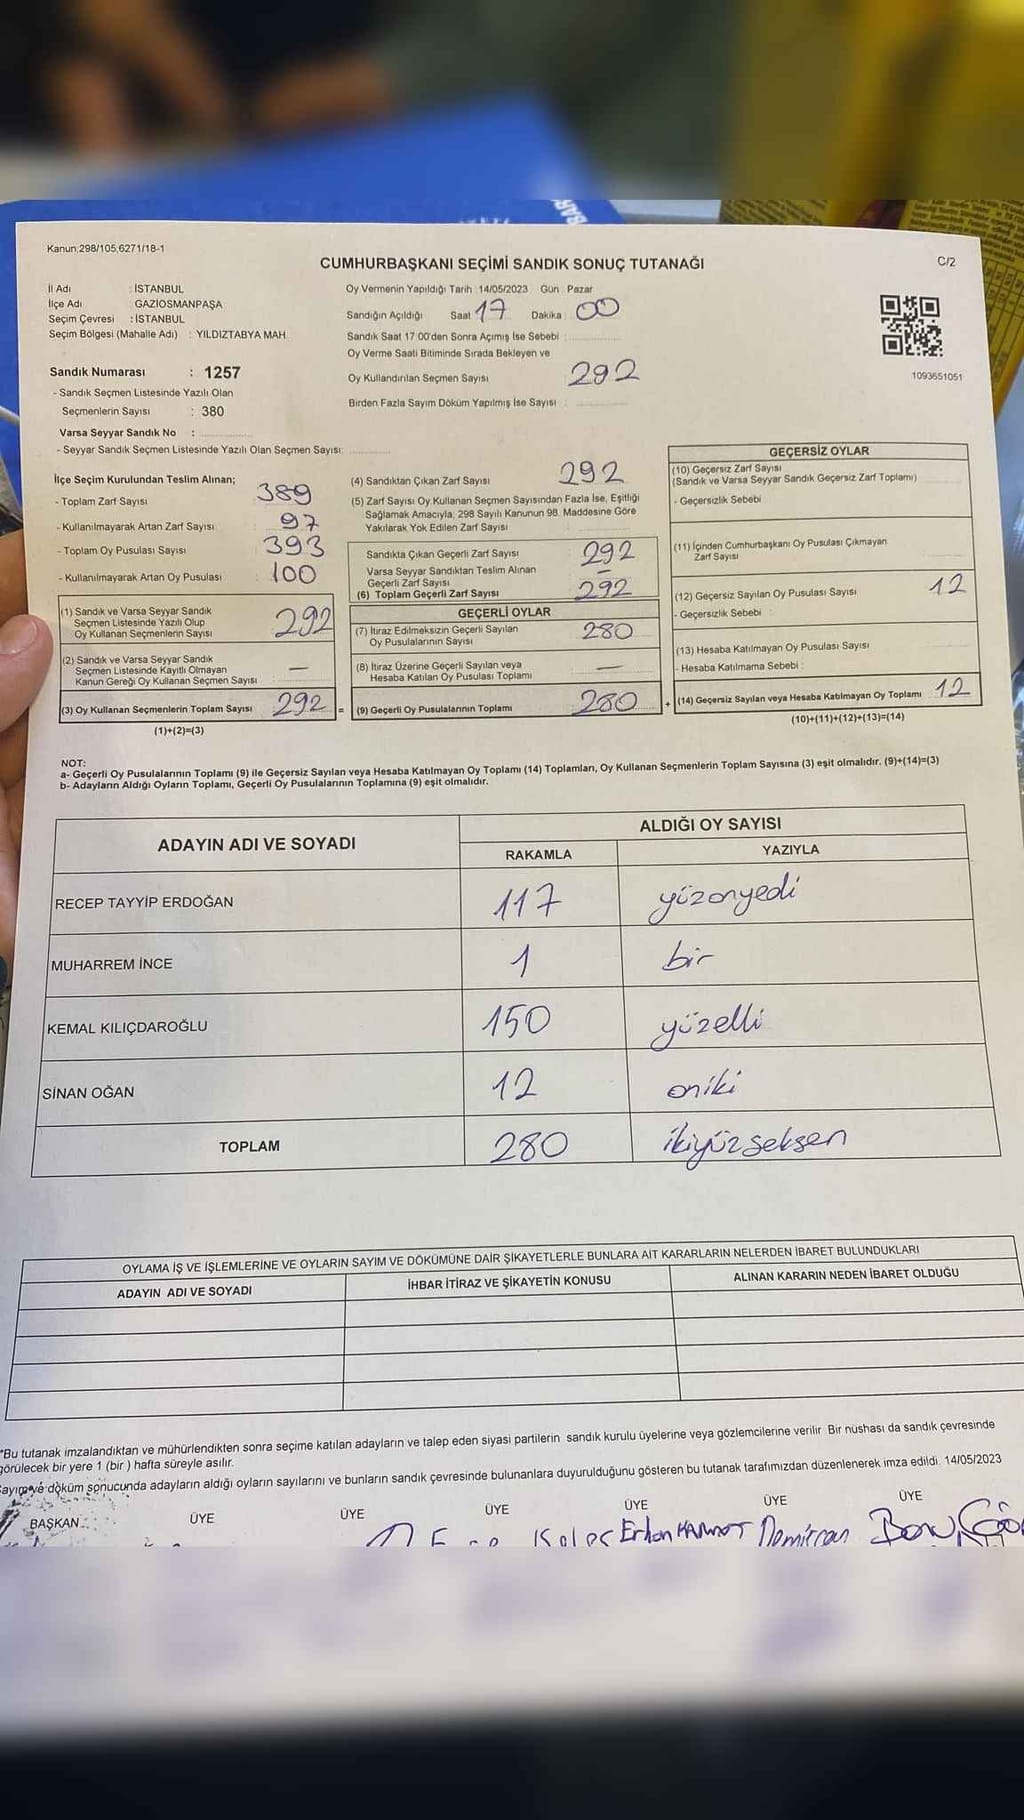 BAR
Kanun:298/105,6271/18-1
C/2
CUMHURBAŞKANI SEÇİMİ SANDIK SONUÇ TUTANAĞI
İl Adı : İSTANBUL
İlçe Adı : GAZİOSMANPAŞA
Seçim Çevresi : İSTANBUL
Seçim Bölgesi (Mahalle Adı) : YILDIZTABYA MAH.
Sandık Numarası : 1257
- Sandık Seçmen Listesinde Yazılı Olan
Seçmenlerin Sayısı : 380
Varsa Seyyar Sandık No :
- Seyyar Sandık Seçmen Listesinde Yazılı Olan Seçmen Sayısı:
Oy Vermenin Yapıldığı Tarih : 14/05/2023 Gün : Pazar
Sandığın Açıldığı Saat 17 Dakika : 00
Sandık Saat 17:00'den Sonra Açımış İse Sebebi :
Oy Verme Saati Bitiminde Sırada Bekleyen ve
Oy Kullandırılan Seçmen Sayısı 292
Birden Fazla Sayım Döküm Yapılmış İse Sayısı :
1093651051
İlçe Seçim Kurulundan Teslim Alınan;
- Toplam Zarf Sayısı 389
- Kullanılmayarak Artan Zarf Sayısı : 97
- Toplam Oy Pusulası Sayısı 393
- Kullanılmayarak Artan Oy Pusulası : 100
(1) Sandık ve Varsa Seyyar Sandık
Seçmen Listesinde Yazılı Olup
Oy Kullanan Seçmenlerin Sayısı 292
(2) Sandık ve Varsa Seyyar Sandık
Seçmen Listesinde Kayıtlı Olmayan
Kanun Gereği Oy Kullanan Seçmen Sayısı : —
(3) Oy Kullanan Seçmenlerin Toplam Sayısı 292 =
(1)+(2)=(3)
(4) Sandıktan Çıkan Zarf Sayısı : 292
(5) Zarf Sayısı Oy Kullanan Seçmen Sayısından Fazla İse, Eşitliği
Sağlamak Amacıyla; 298 Sayılı Kanunun 98. Maddesine Göre
Yakılarak Yok Edilen Zarf Sayısı :
Sandıkta Çıkan Geçerli Zarf Sayısı : 292
Varsa Seyyar Sandıktan Teslim Alınan
Geçerli Zarf Sayısı : —
(6) Toplam Geçerli Zarf Sayısı : 292
GEÇERLİ OYLAR
(7) İtiraz Edilmeksizin Geçerli Sayılan
Oy Pusulalarının Sayısı : 280
(8) İtiraz Üzerine Geçerli Sayılan veya
Hesaba Katılan Oy Pusulası Toplamı : —
(9) Geçerli Oy Pusulalarının Toplamı : 280 +
GEÇERSİZ OYLAR
(10) Geçersiz Zarf Sayısı
(Sandık ve Varsa Seyyar Sandık Geçersiz Zarf Toplamı)
- Geçersizlik Sebebi
(11) İçinden Cumhurbaşkanı Oy Pusulası Çıkmayan
Zarf Sayısı
(12) Geçersiz Sayılan Oy Pusulası Sayısı 12
- Geçersizlik Sebebi :
(13) Hesaba Katılmayan Oy Pusulası Sayısı
- Hesaba Katılmama Sebebi :
(14) Geçersiz Sayılan veya Hesaba Katılmayan Oy Toplamı 12
(10)+(11)+(12)+(13)=(14)
NOT:
a- Geçerli Oy Pusulalarının Toplamı (9) ile Geçersiz Sayılan veya Hesaba Katılmayan Oy Toplamı (14) Toplamları, Oy Kullanan Seçmenlerin Toplam Sayısına (3) eşit olmalıdır. (9)+(14)=(3)
b- Adayların Aldığı Oyların Toplamı, Geçerli Oy Pusulalarının Toplamına (9) eşit olmalıdır.
ADAYIN ADI VE SOYADI
ALDIĞI OY SAYISI
RAKAMLA YAZIYLA
RECEP TAYYİP ERDOĞAN 117 yüzonyedi
MUHARREM İNCE 1 bir
KEMAL KILIÇDAROĞLU 150 yüzelli
SİNAN OĞAN 12 oniki
TOPLAM 280 ikiyüzseksen
OYLAMA İŞ VE İŞLEMLERİNE VE OYLARIN SAYIM VE DÖKÜMÜNE DAİR ŞİKAYETLERLE BUNLARA AİT KARARLARIN NELERDEN İBARET BULUNDUKLARI
ADAYIN ADI VE SOYADI İHBAR İTİRAZ VE ŞİKAYETİN KONUSU ALINAN KARARIN NEDEN İBARET OLDUĞU
*Bu tutanak imzalandıktan ve mühürlendikten sonra seçime katılan adayların ve talep eden siyasi partilerin sandık kurulu üyelerine veya gözlemcilerine verilir. Bir nüshası da sandık çevresinde
görülecek bir yere 1 (bir ) hafta süreyle asılır.
Sayım ve döküm sonucunda adayların aldığı oyların sayılarını ve bunların sandık çevresinde bulunanlara duyurulduğunu gösteren bu tutanak tarafımızdan düzenlenerek imza edildi. 14/05/2023
BAŞKAN ÜYE ÜYE ÜYE ÜYE ÜYE ÜYE